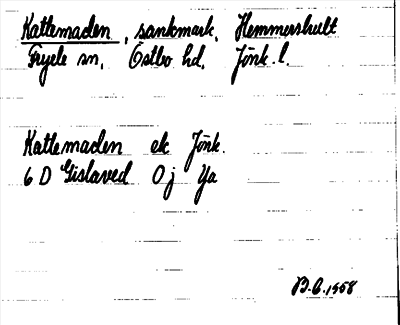 Kattemaden, sankmark, Hemmershult
Fryele sn, Östbo hd, Jönk. l.
Kattemaden ek Jönk.
6 D Gislaved 0 j Ya
B.E. 1958